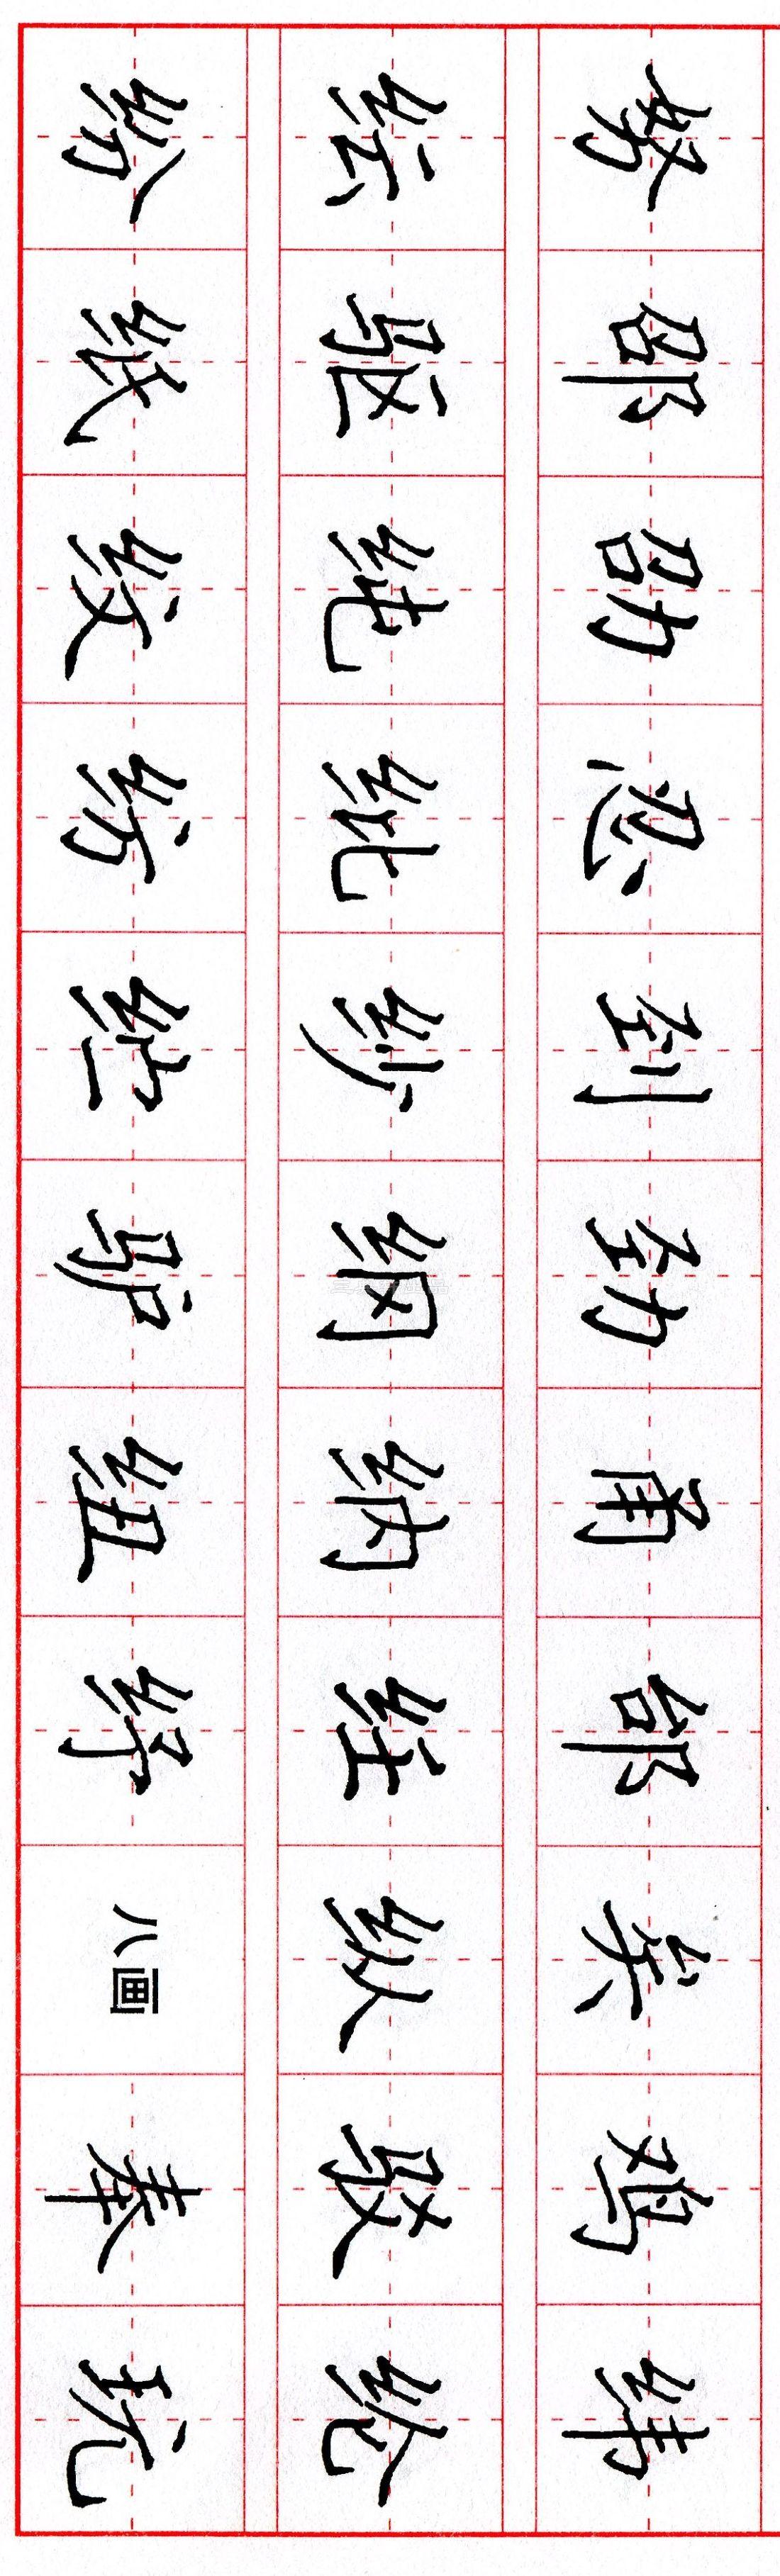 努邵劭忍刭劲甬邰矣鸡纬
纭驱纯纰纱纲纳纴纵驳纶
纷纸纹纺纻驴纽纾八画奉玩